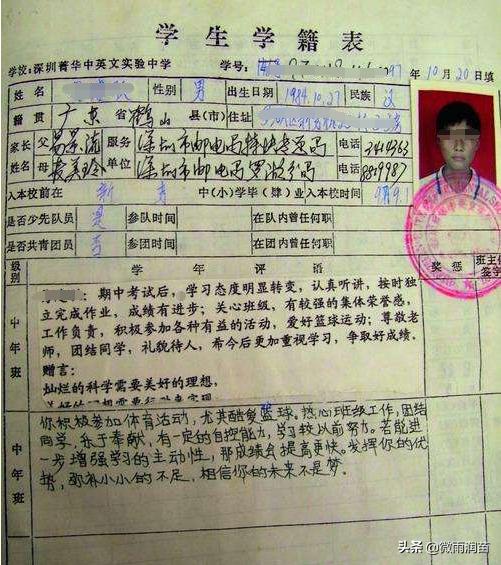 学生学籍表
学校:深圳菁华中英文实验中学 学号: 97年10月20日填
姓名 性别 男 出生日期 1984.10.27 民族 汉
籍贯 广东省鹤山县(市)住址
家长姓名 父 服务单位 深圳市邮电局 电话
母 深圳市邮电局罗湖分局 电话
入本校前在 中(小)学毕(肄)业 入本校时间
是否少先队员 是 参队时间 在队内曾任何职
是否共青团员 否 参团时间 在团内曾任何职
级别 学年评语 奖惩 班主任签字
中年班
:期中考试后,学习态度明显转变,认真听讲,按时独
立完成作业,成绩有进步;关心班级,有较强的集体荣誉感,
工作负责,积极参加各种有益的活动,爱好篮球运动;尊敬老
师,团结同学,礼貌待人,希今后更加重视学习,争取好成绩.
赠言:
灿烂的科学需要美好的理想,
中年班
你积极参加体育活动,尤其酷爱篮球。热心班级工作,团结
同学,乐于奉献,有一定的自控能力,学习较以前努力。若能进
一步增强学习的主动性,那成绩会提高更快。发挥你的优
势,弥补小小的不足,相信你的未来不是梦。
头条@微雨润苗